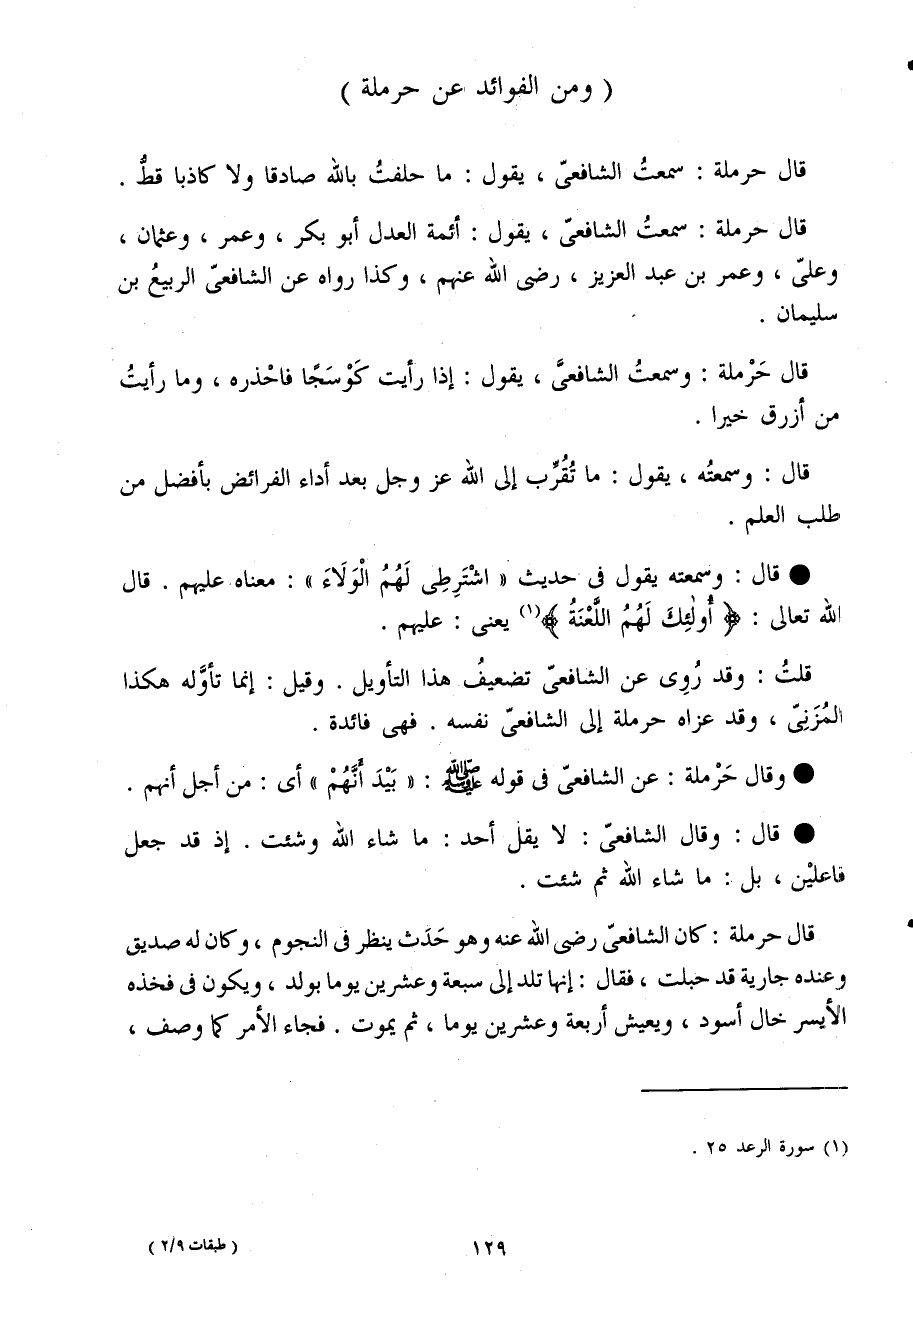 ( ومن الفوائد عن حرملة )
قال حرملة : سمعتُ الشافعىّ ، يقول : ما حلفتُ بالله صادقا ولا كاذبا قطُّ .
قال حرملة : سمعتُ الشافعىّ ، يقول : أئمة العدل أبو بكر ، وعمر ، وعثمان ،
وعلىّ ، وعمر بن عبد العزيز ، رضى الله عنهم ، وكذا رواه عن الشافعىّ الربيعُ بن
سليمان .
قال حَرْملة : وسمعتُ الشافعىَّ ، يقول : إذا رأيت كَوْسَجًا فاحْذره ، وما رأيتُ
من أزرق خيرا .
قال : وسمعتُه ، يقول : ما تُقُرِّب إلى الله عز وجل بعد أداء الفرائض بأفضل من
طلب العلم .
● قال : وسمعته يقول فى حديث « اشْتَرِطِى لَهُمُ الْوَلَاءَ » : معناه عليهم . قال
الله تعالى : ﴿ أُولَٰئِكَ لَهُمُ اللَّعْنَةُ ﴾(١) يعنى : عليهم .
قلتُ : وقد رُوِى عن الشافعىّ تضعيفُ هذا التأويل . وقيل : إنما تأوَّله هكذا
المُزَنِىّ ، وقد عزاه حرملة إلى الشافعىّ نفسه . فهى فائدة .
● وقال حَرْملة : عن الشافعىّ فى قوله ﷺ : « بَيْدَ أَنَّهُمْ » أى : من أجل أنهم .
● قال : وقال الشافعىّ : لا يقل أحد : ما شاء الله وشئت . إذ قد جعل
فاعليْن ، بل : ما شاء الله ثم شئت .
قال حرملة : كان الشافعىّ رضى الله عنه وهو حَدَث ينظر فى النجوم ، وكان له صديق
وعنده جارية قد حبلت ، فقال : إنها تلد إلى سبعة وعشرين يوما بولد ، ويكون فى فخذه
الأيسر خال أسود ، ويعيش أربعة وعشرين يوما ، ثم يموت . فجاء الأمر كما وصف ،
(١) سورة الرعد ٢٥ .
١٢٩
( طبقات ٢/٩ )